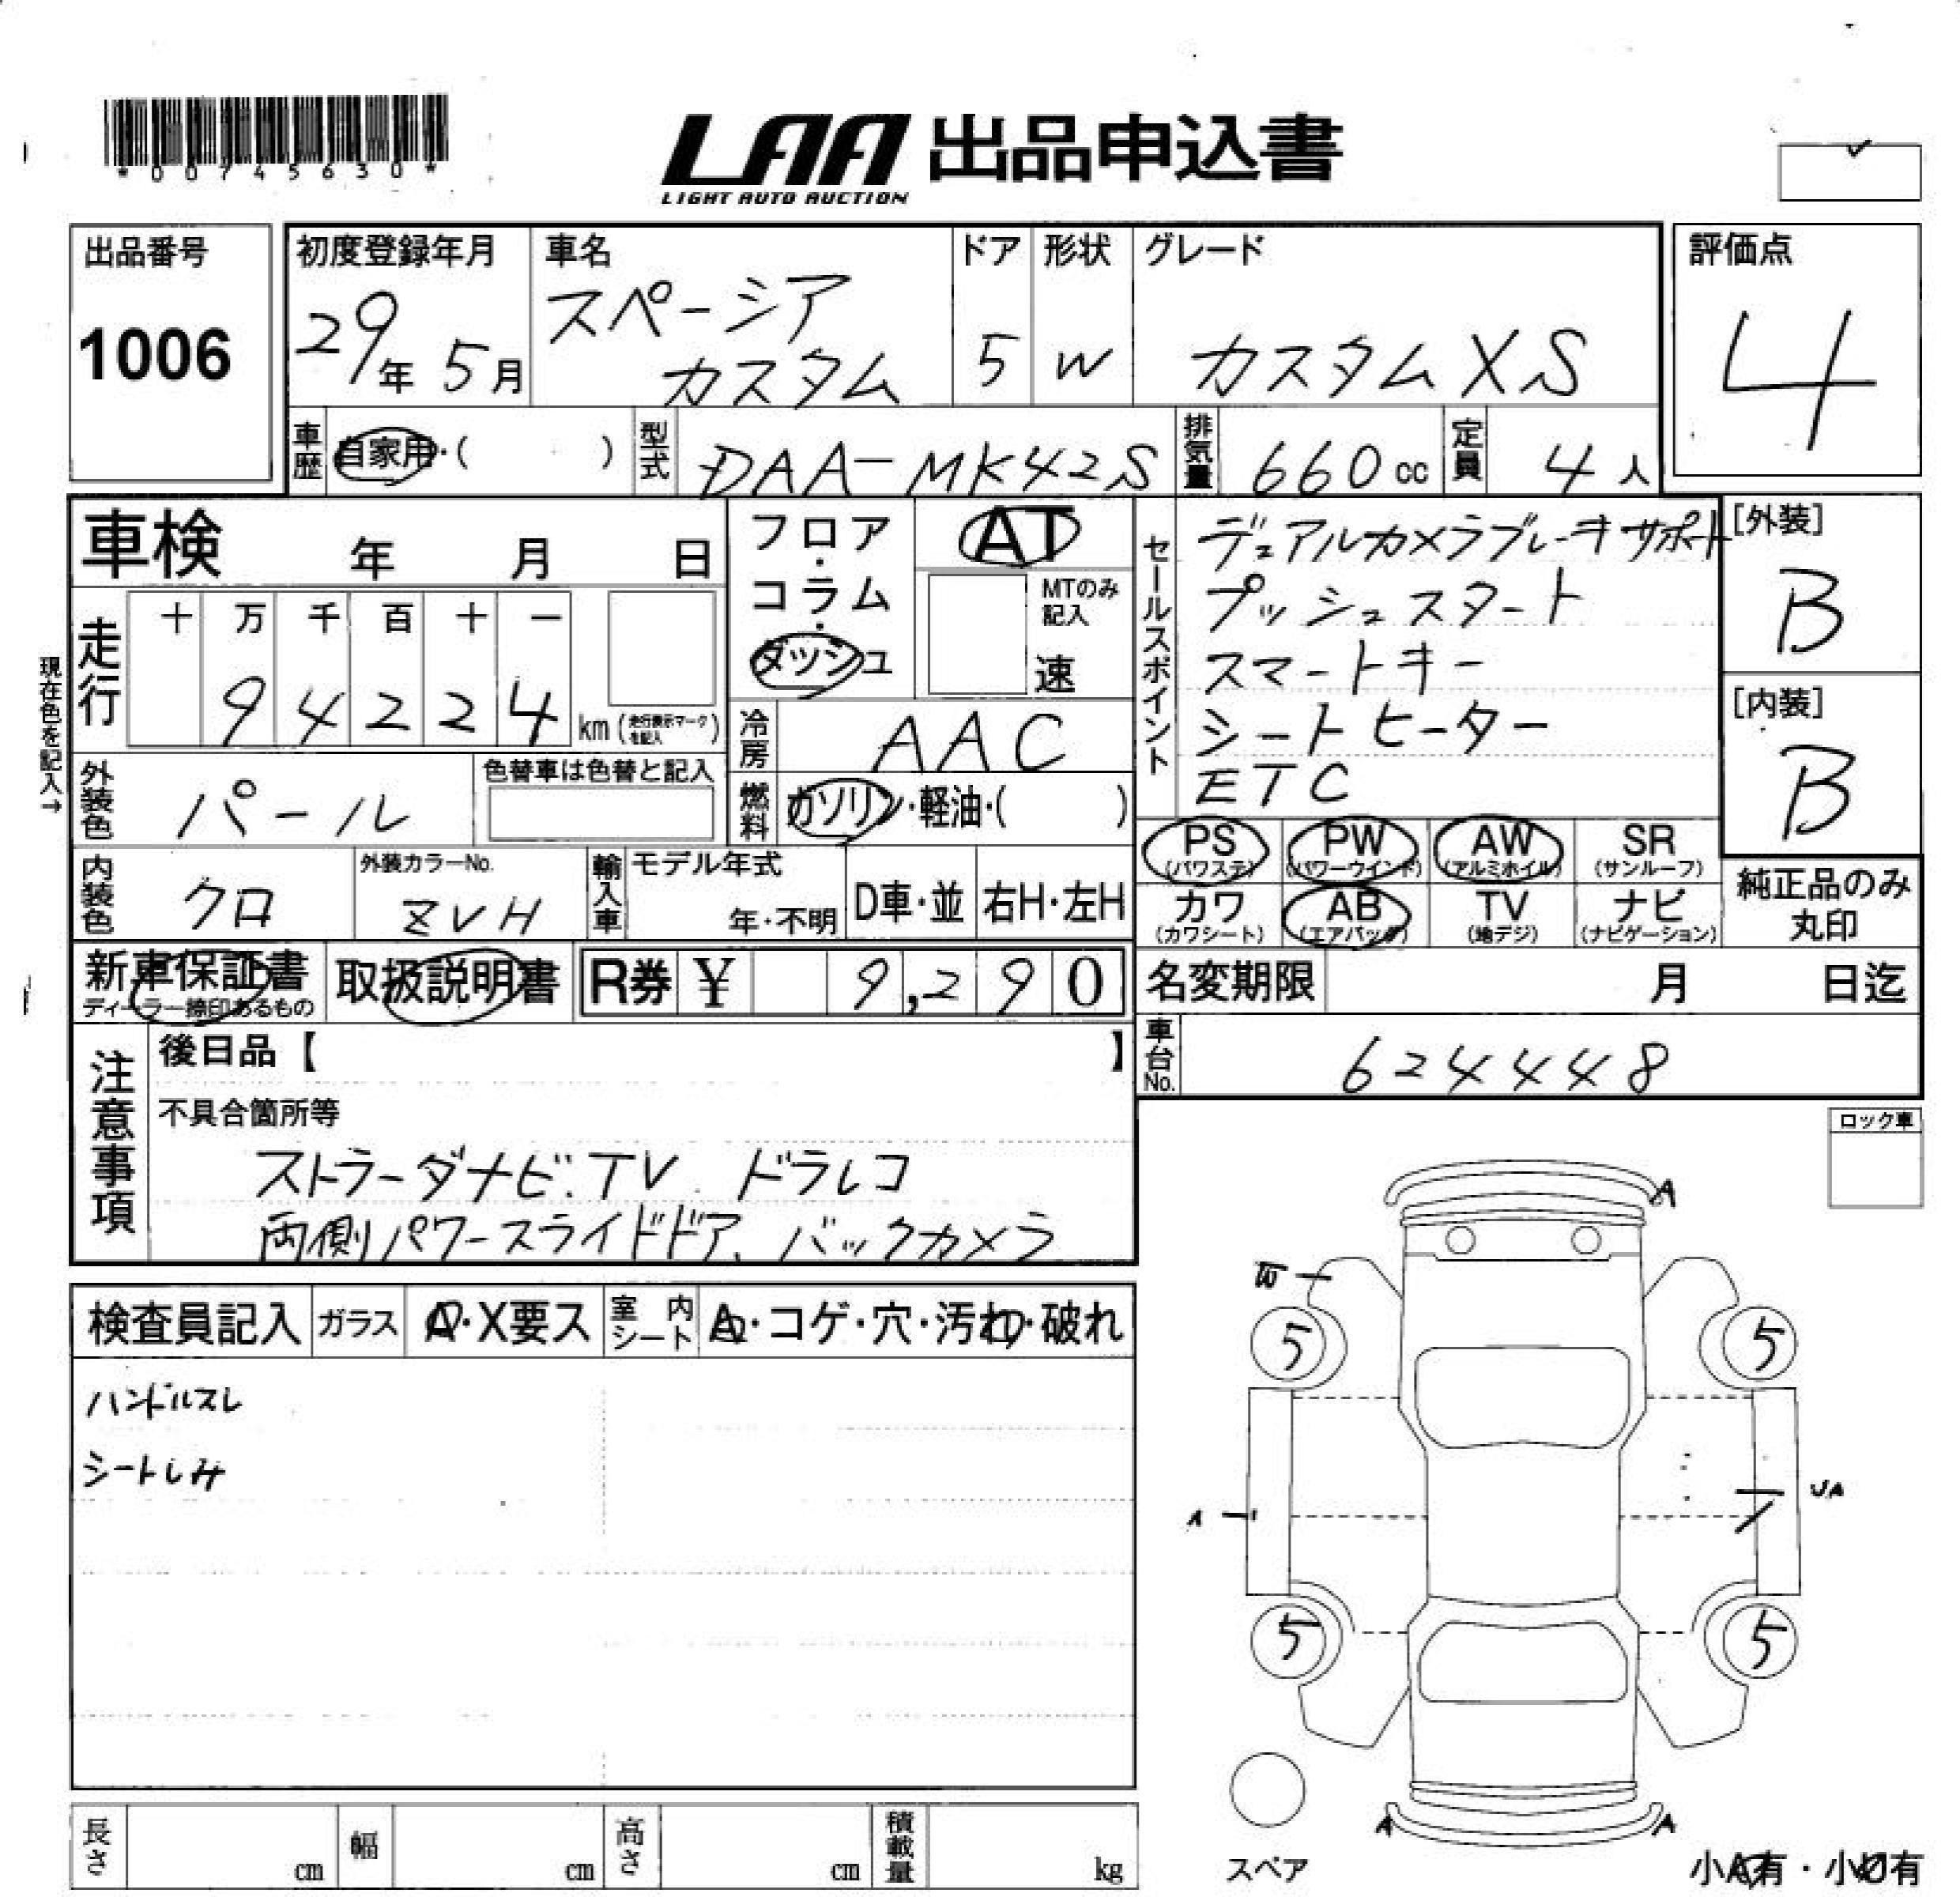 *00745630*
LAA 出品申込書
LIGHT AUTO AUCTION
出品番号
1006
初度登録年月
29年 5月
車名
スペーシア
カスタム
ドア
5
形状
W
グレード
カスタムXS
評価点
4
車歴 自家用・( )
型式 DAA-MK42S
排気量 660cc
定員 4人
車検 年 月 日
現在色を記入→
走行
十 万 千 百 十 一
9 4 2 2 4 km (走行表示マークを記入)
フロア・コラム・ダッシュ
AT
MTのみ記入
速
冷房 AAC
燃料 ガソリン・軽油・( )
外装色 パール
色替車は色替と記入
内装色 クロ
外装カラーNo.
ZVH
輸入車 モデル年式
年・不明
D車・並
右H・左H
セールスポイント
デュアルカメラブレーキサポート
プッシュスタート
スマートキー
シートヒーター
ETC
[外装]
B
[内装]
B
PS (パワステ)
PW (パワーウインド)
AW (アルミホイル)
SR (サンルーフ)
カワ (カワシート)
AB (エアバッグ)
TV (地デジ)
ナビ (ナビゲーション)
純正品のみ
丸印
新車保証書
ディーラー捺印あるもの
取扱説明書
R券 ¥ 9,290
名変期限 月 日迄
車台No. 624448
注意事項
後日品【 】
不具合箇所等
ストラーダナビ.TV ドラレコ
両側パワースライドドア、バックカメラ
ロック車
検査員記入
ガラス
A・X要ス
室内シート
A・コゲ・穴・汚れ・破れ
ハンドルスレ
シートしみ
A
W
5
5
A
UA
5
5
A
A
スペア
小A有・小U有
長さ cm
幅 cm
高さ cm
積載量 kg